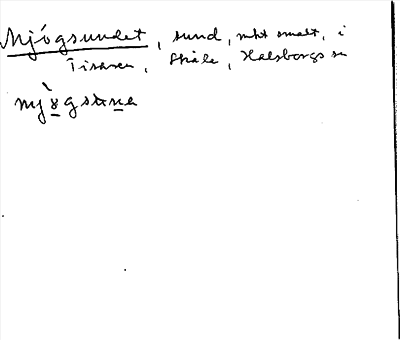 Mjógsundet, sund, mkt smalt, i
Tisaren, Skåle, Halsborgs sn
mjògsúna